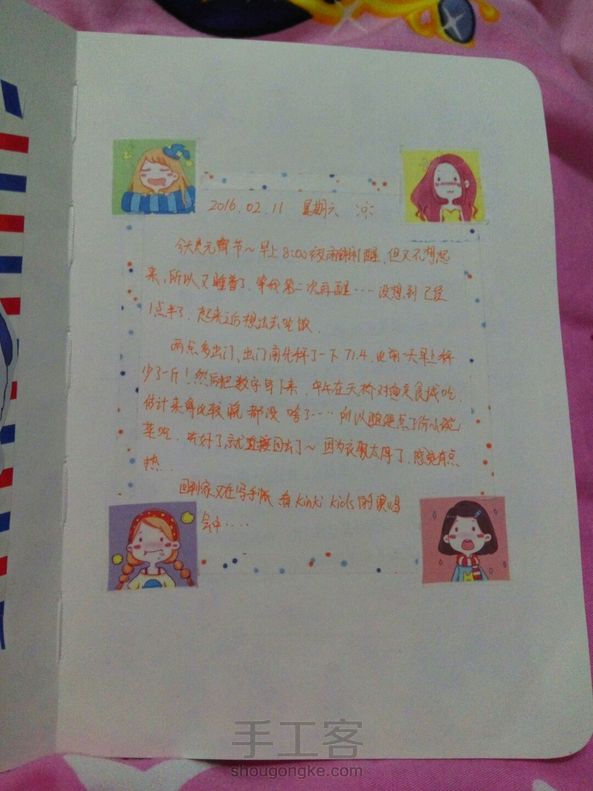 2016.02.11 星期六
今天是元宵节~早上8:00被闹制醒,但又不想起
来,所以又睡着了.等我第二次再醒……没想到已经
1点半了.起来还想法去吃饭.
两点多出门,出门前先称了一下71.4.比前一天早上称
少了一斤!然后把数字写下来.中午在天桥对面美食城吃.
估计来得比较晚 都没啥了……所以随便点了份小碗
菜吃.吃好了就直接回去了~因为衣服太厚了,感觉有点
热
回到家又在写手帐 看kinki kids的演唱
会中....
手工客
shougongke.com